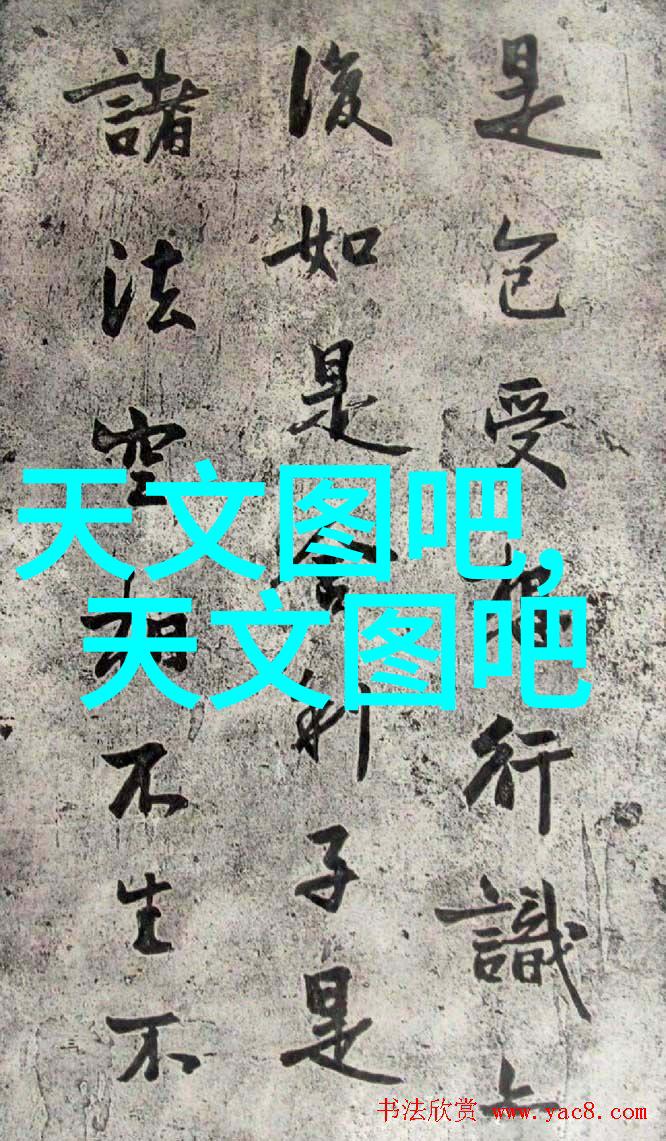 是色受想行識亦
復如是舍利子是
諸法空相不生不
天文图吧,
天文图吧
书法欣赏 www.yac8.com